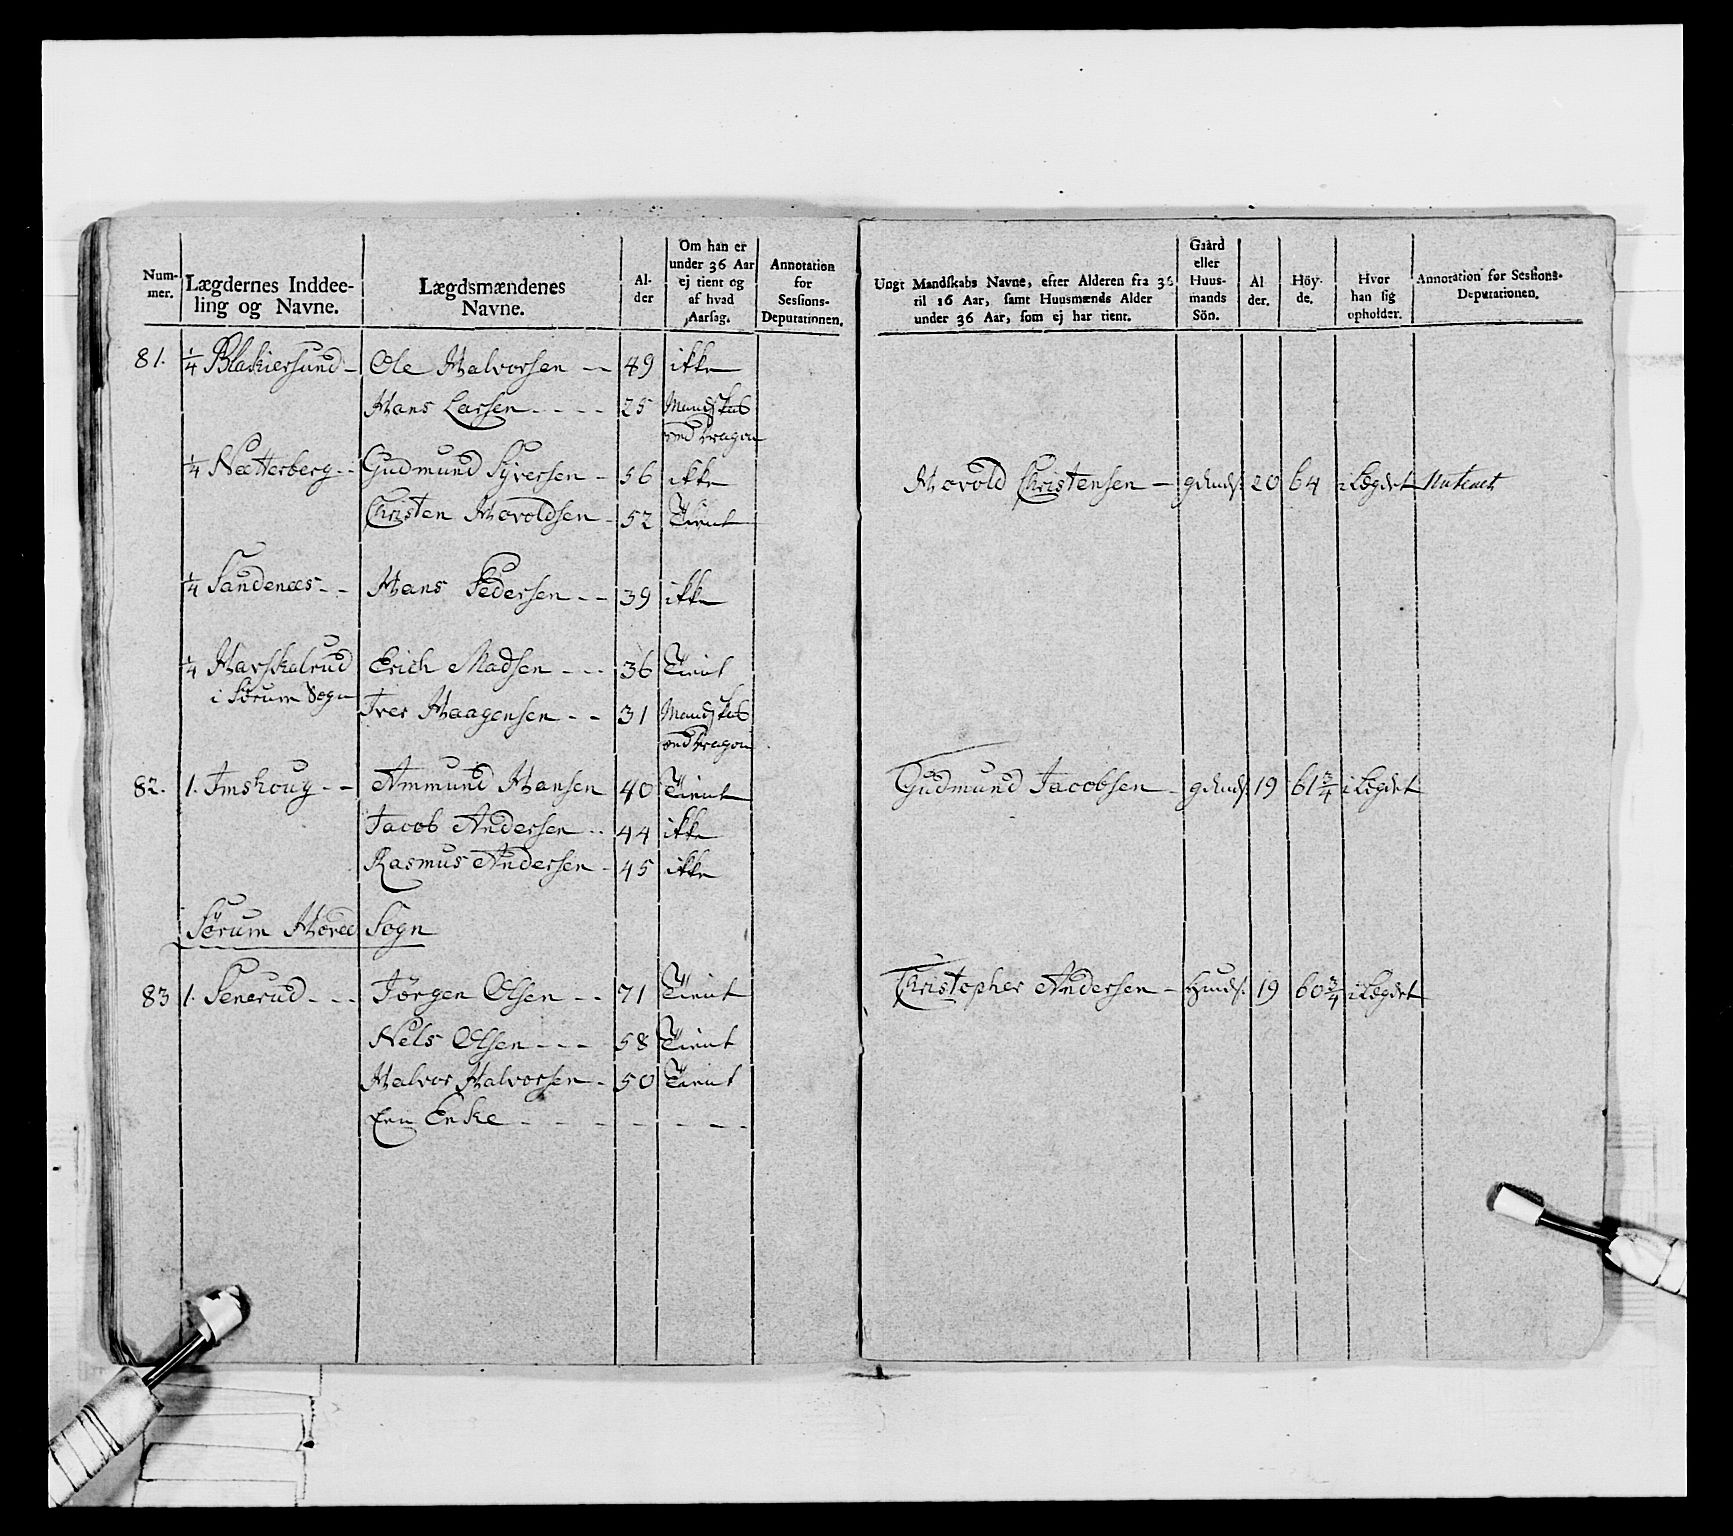 Num-
mer.
Lægdernes Inddee-
ling og Navne.
Lægdsmændenes
Navne.
Al-
der
Om han er
under 36 Aar
ej tient og
af hvad
Aarsag.
Annotation
for
Sessions-
Deputationen.
Ungt Mandskabs Navne, efter Alderen fra 36
til 16 Aar, samt Huusmænds Alder
under 36 Aar, som ej har tient.
Gaard
eller
Huus-
mands
Sön.
Al
der.
Höy-
de.
Hvor
han sig
opholder.
Annotation for Sessions-
Deputationen.
81. 1/4 Blakiersund - Ole Halvorsen - - 49 ikke
Hans Larsen - - - - 25 Mandskab
ved Dragon
1/4 Netterberg - - Gudmund Syversen - 56 ikke Harold Christensen - gdmds. 20 64 i Lægdet
Christen Haroldsen - 52 Tient
1/4 Sandenæs - - Hans Pedersen - - 39 ikke
1/4 Harskalrud Erich Madsen - - - 36 Tient
i Sørum Sogn
Iver Haagensen - - 31 Mandskab
ved Dragon
82. 1. Imshoug - - Ammund Hansen 40 Tient Gudmund Jacobsen - gdmds. 19 61 3/4 i Lægdet
Jacob Andersen - - 44 ikke
Rasmus Andersen - 45 ikke
Sørum Hoved Sogn
83 1. Senerud - - - Jørgen Olsen - - 71 Tient Christopher Andersen - Hmds. 19 60 3/4 i Lægdet
Nels Olsen - - - 58 Tient
Halvor Halvorsen - 50 Tient
Een Enke - - - - - - -